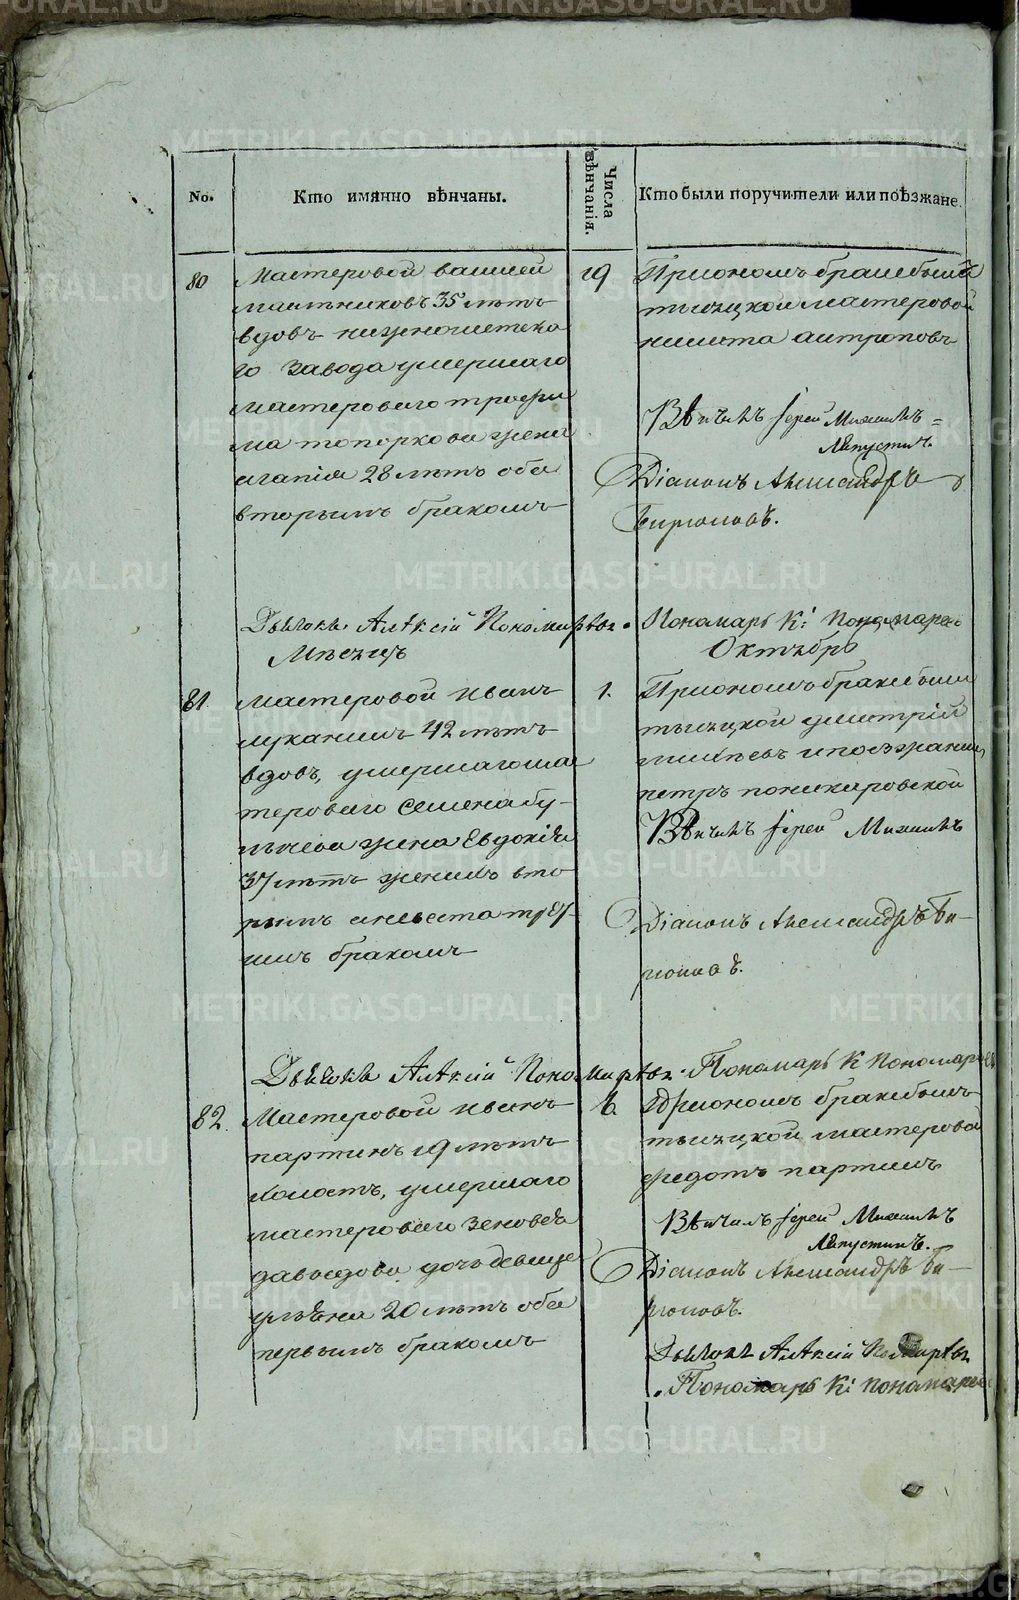 No.
Кто имянно вѣнчаны.
Числа вѣнчанія.
Кто были поручители или поѣзжане.
80
Мастеровой василей
мальниковъ 35 лѣтъ
вдовъ нижно
го завода умершаго
мастероваго трофи
ма топоркова жена
агапія 28 лѣтъ оба
вторымъ бракомъ
19
При ономъ браке были
мастеровой
никита антроповъ
Вѣнчалъ Іерей Михаилъ
Лѣпустинъ.
Діаконъ Александръ
Бирюковъ.
Дьячокъ Алѣксій Пономарѣвъ.
Пономарь К: Пономаревъ
Мѣсяцъ
Октябрь
81
мастеровой иванъ
луканинъ 42 лѣтъ
вдовъ, умершаго мас
тероваго семена бу-
жена Евдокія
37 лѣтъ женихъ вто
рымъ а невеста треть-
имъ бракомъ
1.
При ономъ браке были
дмитрій
и поезжанинъ
петръ
Вѣнчалъ Іерей Михаилъ
Діаконъ Александръ Би-
рюковъ.
Дьячокъ Алѣксій Пономарѣвъ.
Пономарь К Пономаревъ
82.
Мастеровой иванъ
партинъ 19 лѣтъ
холостъ, умершаго
мастероваго зеновея
давыдова дочь девица
20 лѣтъ оба
первымъ бракомъ
При ономъ браке былъ
мастеровой
федотъ партинъ
Вѣнчалъ Іерей Михаилъ
Лѣпустинъ.
Діаконъ Александръ Би-
рюковъ.
Дьячокъ Алѣксій Пономарѣвъ
Пономарь К: Пономаревъ
METRIKI.GASO-URAL.RU